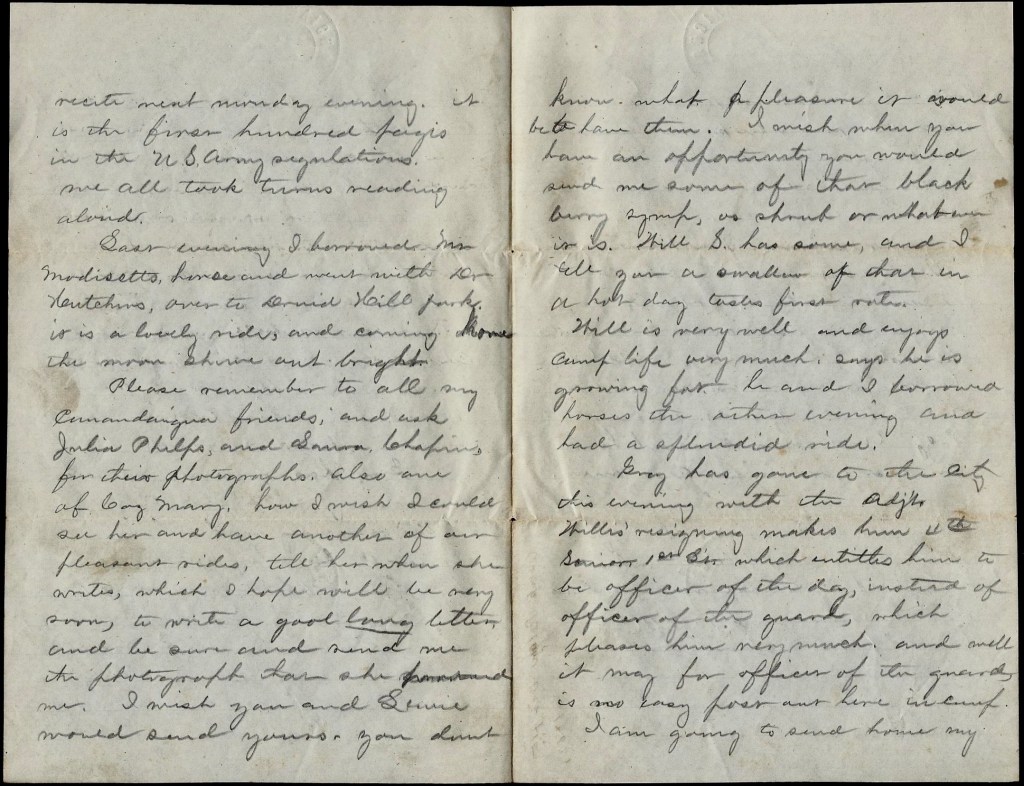 recite next monday evening. it
is the first hundred pagis
in the U S. Army regulations.
we all took turns reading
aloud.
Last evening I borrowed Mr
Modisetts, horse and went with Dr
Hutchins, over to Druid Hill park,
it is a lovely ride, and coming home
the moon shone out bright.
Please remember to all my
Canandaigua friends, and ask
Julia Phelps, and Laura Chapin,
for their photographs. also one
of Coz Mary. how I wish I could
see her and have another of our
pleasant rides, tell her when she
writes, which I hope will be very
soon, to write a good long letter,
and be sure and send me
the photograph that she promised
me. I wish you and
would send yours. you dont
know. what pleasure it would
be to have them. I wish when you
have an opportunity you would
send me some of that black
berry syrup, or shrub or whatever
it is. Will S. has some, and I
tell you a swallow of that in
a hot day tastes first rate.
Will is very well and enjoys
camp life very much. says he is
growing fat. he and I borrowed
horses the other evening and
had a splendid ride.
Gray has gone to the City
this evening with the Adjt.
Willis' resigning makes him 4th
Senior 1st which entitles him to
be officer of the day, insted of
officer of the guard, which
pleases him very much. and well
it may for officer of the guard,
is no easy post out here in camp.
I am going to send home my